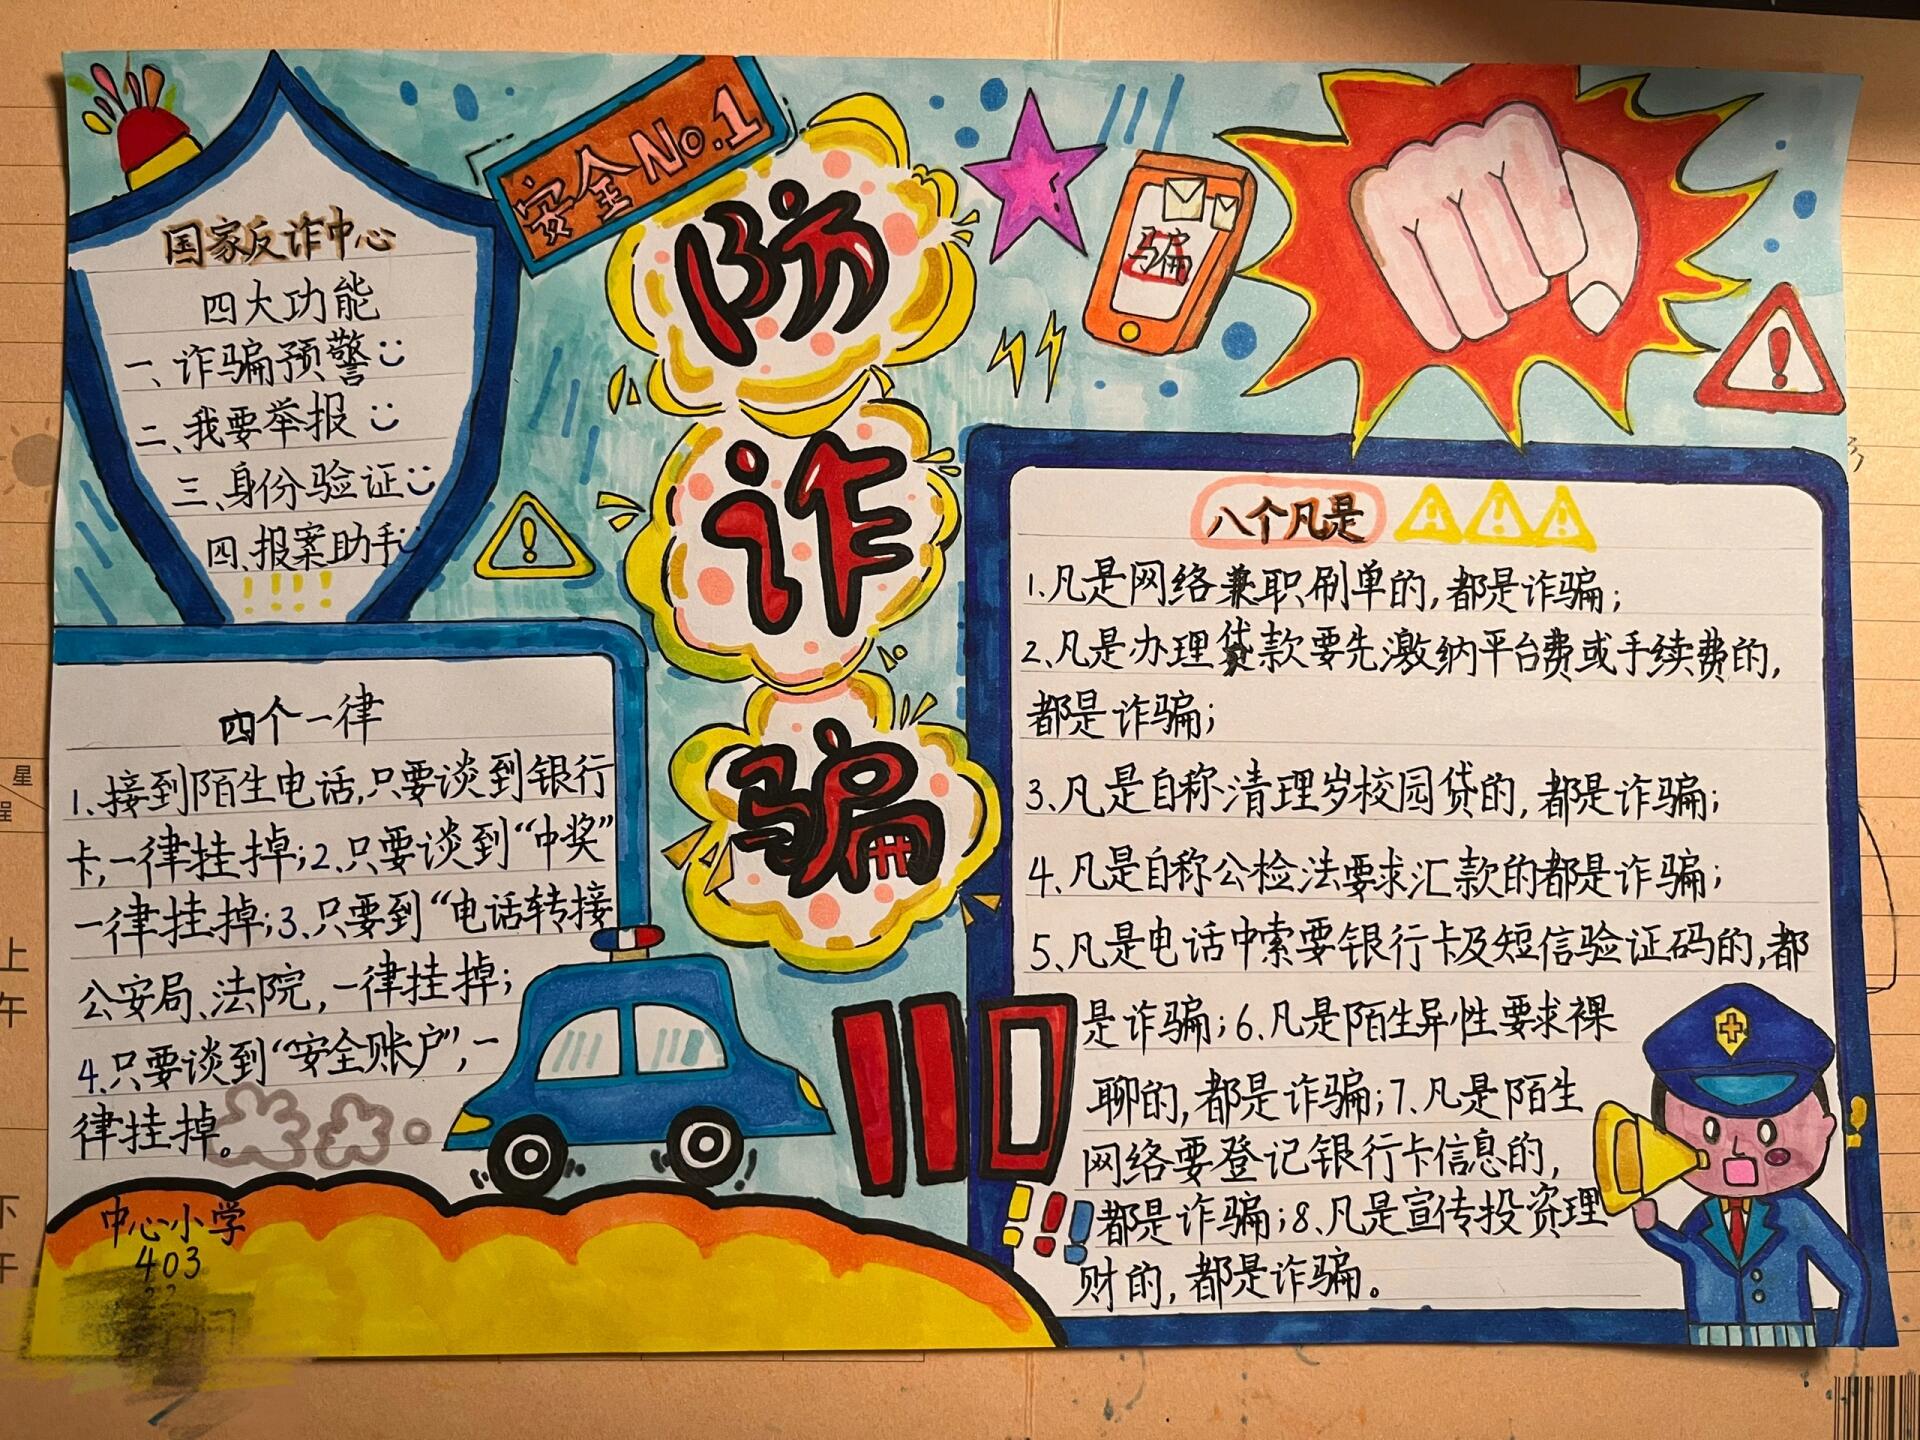 安全No.1
防
诈
骗
骗
国家反诈中心
四大功能
一、诈骗预警
二、我要举报
三、身份验证
四、报案助手
!!!!
四个一律
1、接到陌生电话,只要谈到银行
卡,一律挂掉;2、只要谈到“中奖”
一律挂掉;3、只要到“电话转接
公安局、法院,一律挂掉;
4、只要谈到“安全账户”,一
律挂掉。
中心小学
403
110
!!!
八个凡是
1、凡是网络兼职刷单的,都是诈骗;
2、凡是办理贷款要先激纳平台费或手续费的,
都是诈骗;
3、凡是自称清理岁校园贷的,都是诈骗;
4、凡是自称公检法要求汇款的都是诈骗;
5、凡是电话中索要银行卡及短信验证码的,都
是诈骗;6、凡是陌生异性要求裸
聊的,都是诈骗;7、凡是陌生
网络要登记银行卡信息的,
都是诈骗;8、凡是宣传投资理
财的,都是诈骗。
星
程
上
午
下
午